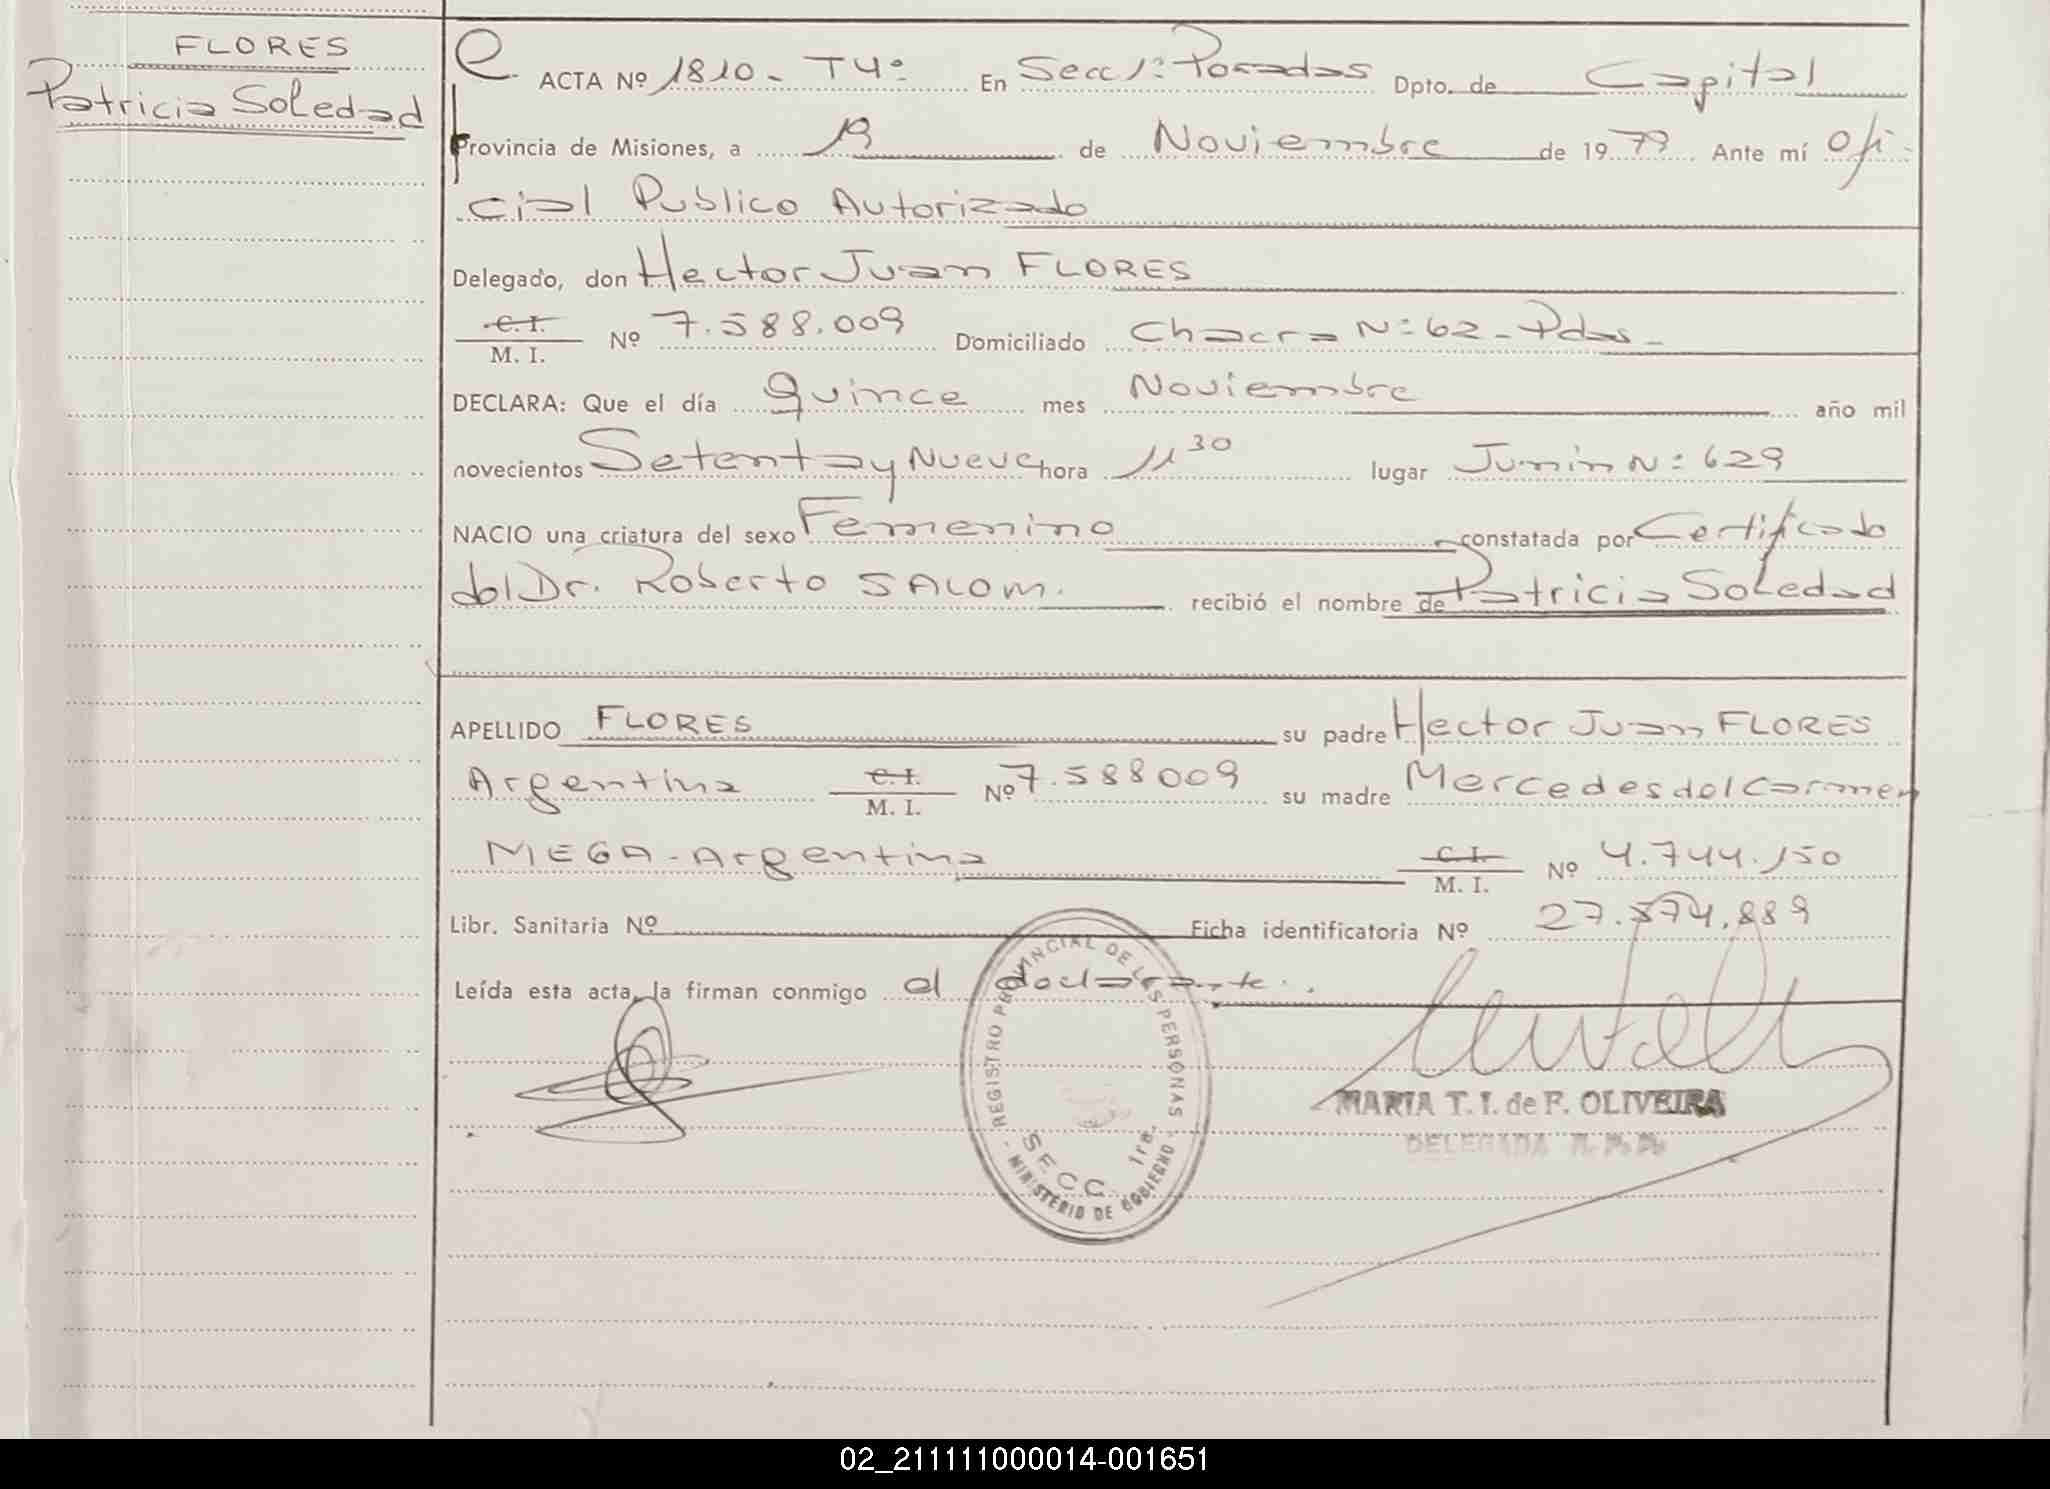 FLORES
Patricia Soledad
ACTA Nº 1810 - T4º En Secc 1ª Posadas Dpto. de Capital
Provincia de Misiones, a 19 de Noviembre de 1979 Ante mí Ofi-
cial Publico Autorizado
Delegado, don Hector Juan FLORES
C. I.
M. I. Nº 7.588.009 Domiciliado Chacra Nº 62 - Pdas -
DECLARA: Que el día Quince mes Noviembre año mil
novecientos Setenta y Nueve hora 11 30 lugar Junin Nº 629
NACIO una criatura del sexo Femenino constatada por Certificado
del Dr. Roberto SALOM. recibió el nombre de Patricia Soledad
APELLIDO FLORES su padre Hector Juan FLORES
Argentina C. I. M. I. Nº 7.588009 su madre Mercedes del Carmen
MEGA - Argentina C. I. M. I. Nº 4.744.150
Libr. Sanitaria Nº Ficha identificatoria Nº 27.574.889
Leída esta acta, la firman conmigo el declarante.
REGISTRO PROVINCIAL DE LAS PERSONAS
SECC. 1ra.
MINISTERIO DE GOBIERNO
MARIA T. I. de F. OLIVEIRA
DELEGADA
02_211111000014-001651